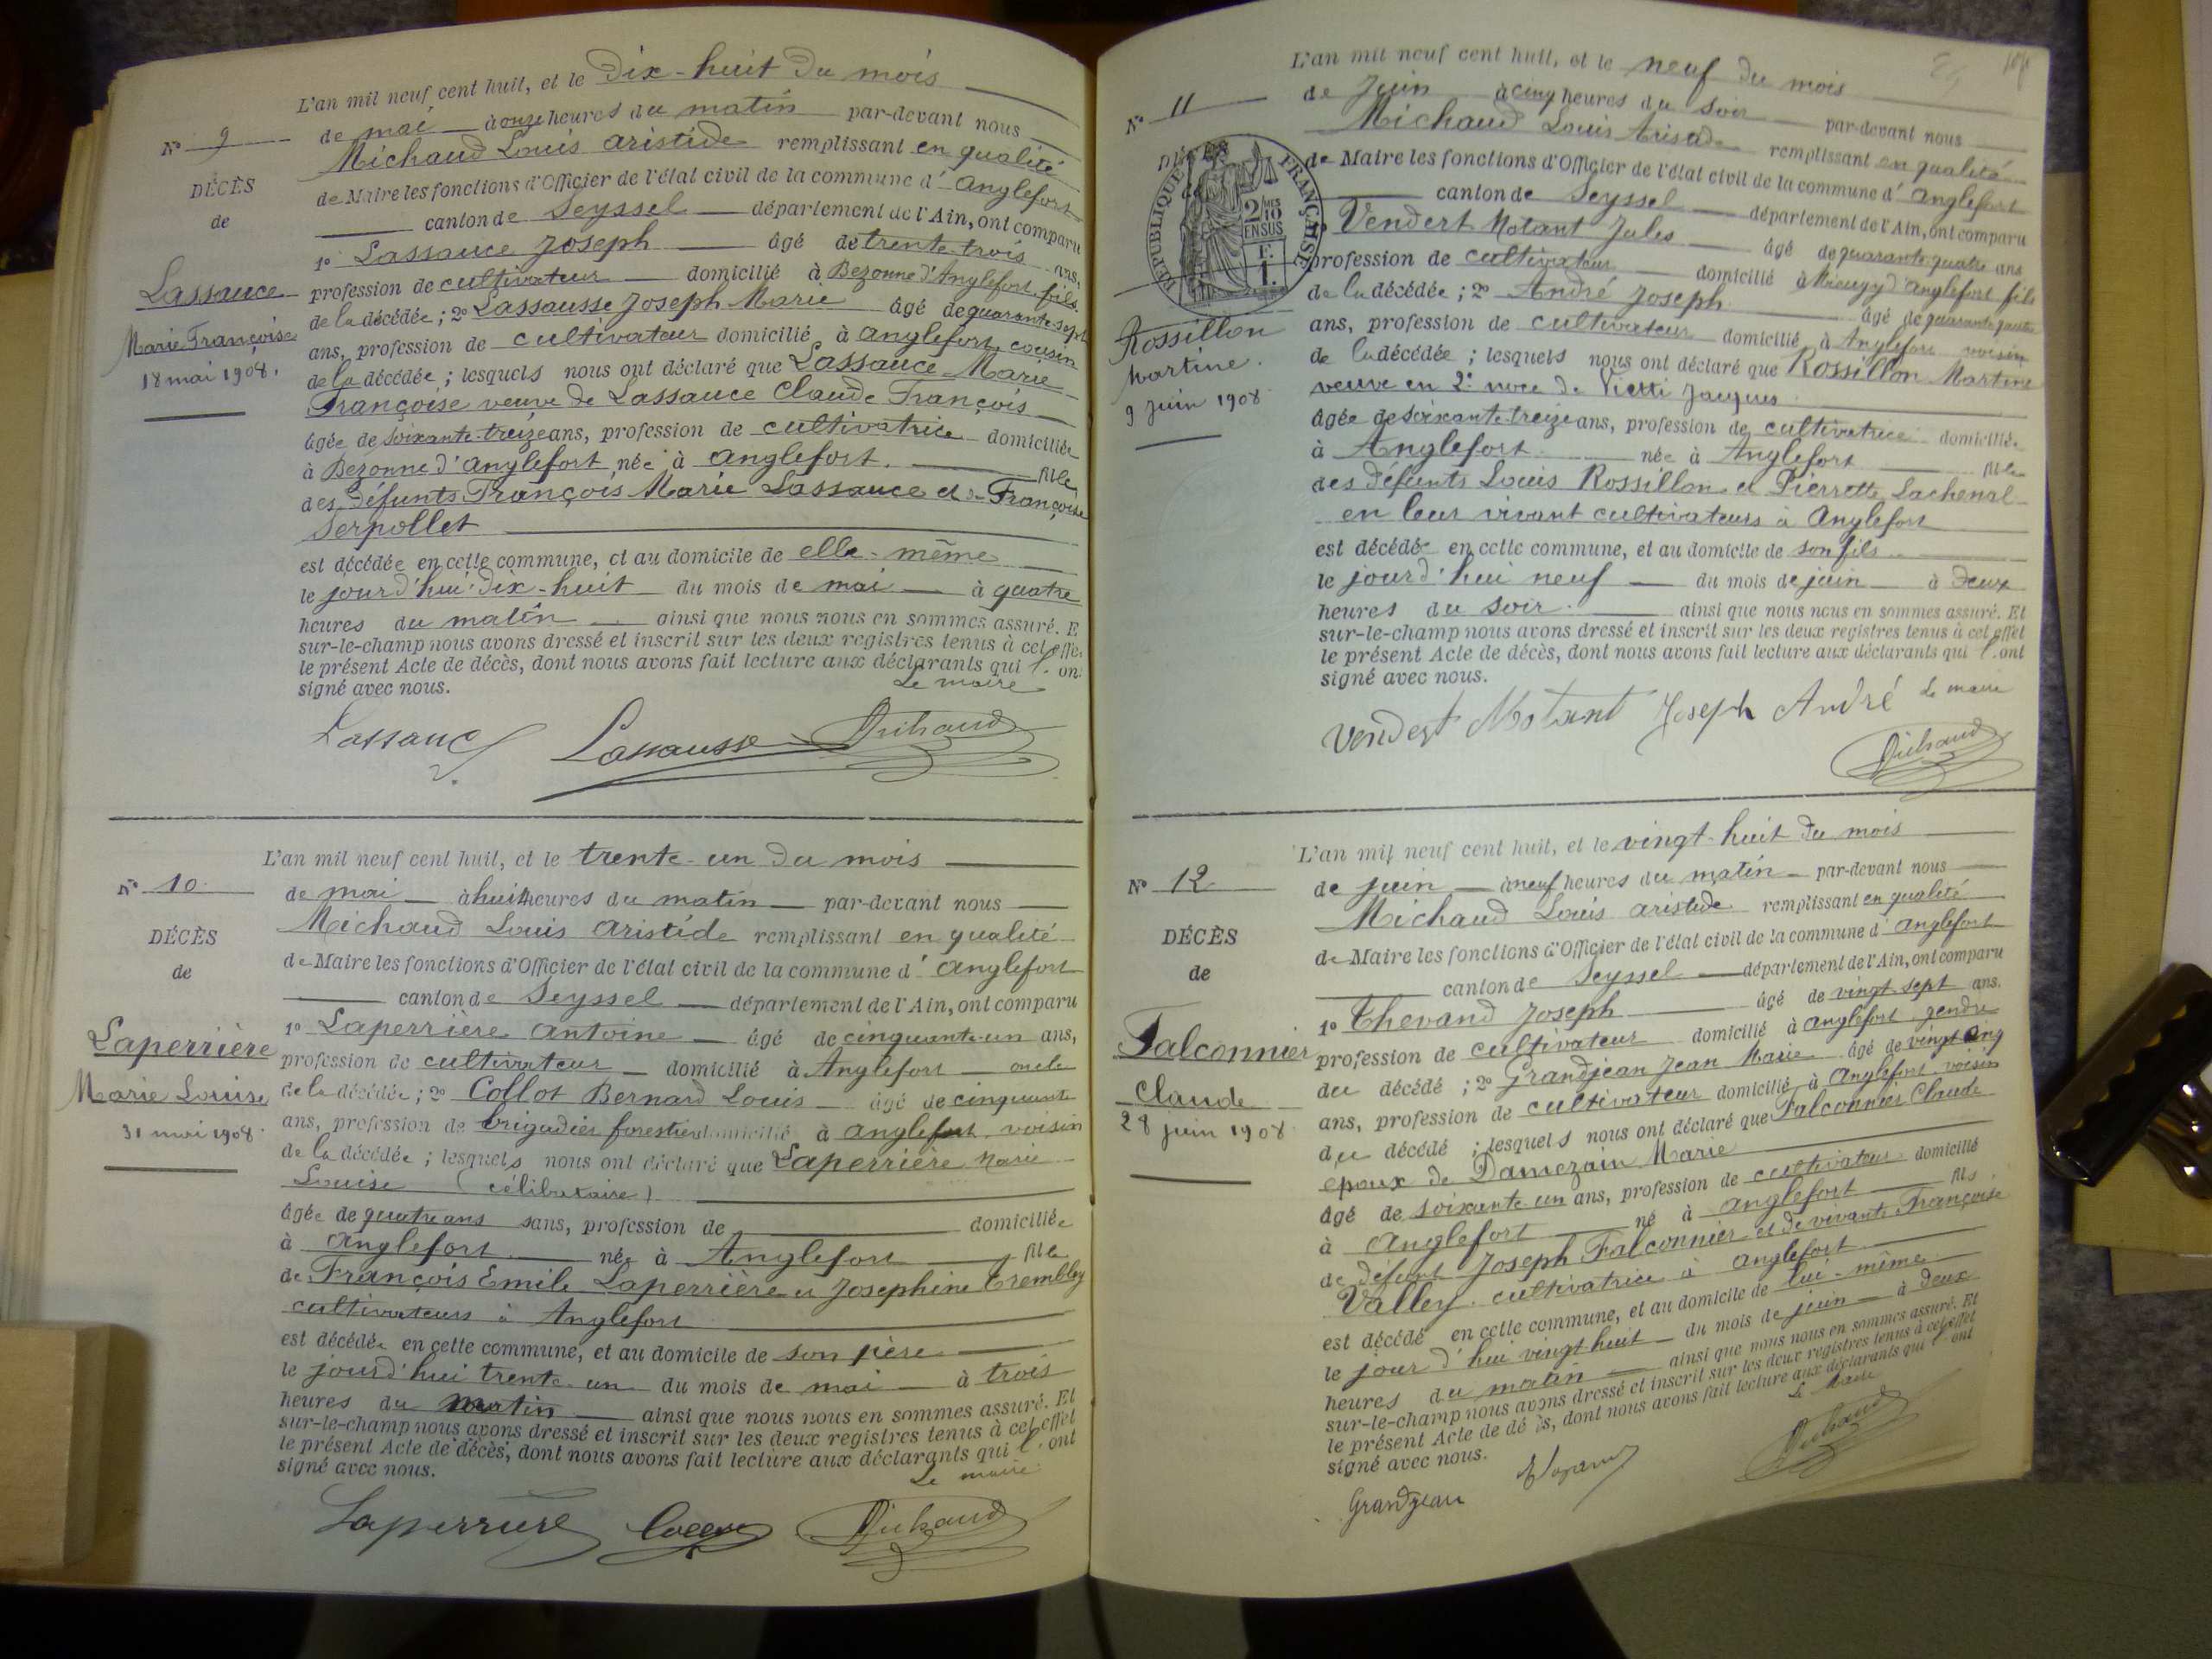 L'an mil neuf cent huit, et le Dix-huit du mois
N° 9
de mai à onze heures du matin par-devant nous
Michaud Louis Aristide remplissant en qualité
DÉCÈS
de Maire les fonctions d'Officier de l'état civil de la commune d'Anglefort
de
canton de Seyssel département de l'Ain, ont comparu
1° Lassauce Joseph âgé de trente-trois ans,
Lassauce
profession de cultivateur domicilié à Bezonne d'Anglefort, fils
de la décédée ; 2° Lassausse Joseph Marie âgé de quarante-sept
Marie Françoise
ans, profession de cultivateur domicilié à Anglefort, cousin
18 mai 1908.
de la décédée ; lesquels nous ont déclaré que Lassauce Marie
Françoise veuve de Lassauce Claude François
âgée de soixante-treize ans, profession de cultivatrice domiciliée
à Bezonne d'Anglefort née à Anglefort. fille
des défunts François Marie Lassauce et de Françoise
Serpollet
est décédée en cette commune, et au domicile de elle-même
le jourd'hui dix-huit du mois de mai à quatre
heures du matin ainsi que nous nous en sommes assuré. E
sur-le-champ nous avons dressé et inscrit sur les deux registres tenus à cet effe
le présent Acte de décès, dont nous avons fait lecture aux déclarants qui l'on
signé avec nous. Le maire
Lassauce Lassausse Michaud
L'an mil neuf cent huit, et le trente-un du mois
N° 10
de mai à huit heures du matin par-devant nous
Michaud Louis Aristide remplissant en qualité
DÉCÈS
de Maire les fonctions d'Officier de l'état civil de la commune d'Anglefort
de
canton de Seyssel département de l'Ain, ont comparu
1° Laperrière Antoine âgé de cinquante-un ans,
Laperrière
profession de cultivateur domicilié à Anglefort oncle
Marie Louise
de la décédée ; 2° Collot Bernard Louis âgé de cinquante
31 mai 1908.
ans, profession de brigadier forestier domicilié à Anglefort voisin
de la décédée ; lesquels nous ont déclaré que Laperrière Marie
Louise (célibataire)
âgée de quatre ans sans, profession de domiciliée
à Anglefort née à Anglefort fille
de François Emile Laperrière et Josephine Trembley
cultivateurs à Anglefort
est décédée en cette commune, et au domicile de son père
le jourd'hui trente-un du mois de mai à trois
heures du matin ainsi que nous nous en sommes assuré. Et
sur-le-champ nous avons dressé et inscrit sur les deux registres tenus à cet effet
le présent Acte de décès, dont nous avons fait lecture aux déclarants qui l'ont
signé avec nous. Le maire
Laperrière Michaud
L'an mil neuf cent huit, et le neuf du mois
N° 11
de Juin à cinq heures du soir par-devant nous
Michaud Louis Aristide remplissant en qualité
DÉCÈS
RÉPUBLIQUE FRANÇAISE
2/10MES EN SUS
de Maire les fonctions d'Officier de l'état civil de la commune d'Anglefort
canton de Seyssel département de l'Ain, ont comparu
Vendert Motant Jules âgé de quarante quatre ans
profession de cultivateur domicilié à d'Anglefort fils
de la décédée ; 2° André Joseph âgé de quarante quatre
Rossillon
ans, profession de cultivateur domicilié à Anglefort voisin
Martine.
de la décédée ; lesquels nous ont déclaré que Rossillon Martine
9 Juin 1908
veuve en 2e noce de Jacques
âgée de soixante-treize ans, profession de cultivatrice domiciliée
à Anglefort née à Anglefort fille
des défunts Louis Rossillon et Pierrette Lachenal
en leur vivant cultivateurs à Anglefort
est décédée en cette commune, et au domicile de son fils
le jourd'hui neuf du mois de juin à deux
heures du soir. ainsi que nous nous en sommes assuré. Et
sur-le-champ nous avons dressé et inscrit sur les deux registres tenus à cet effet
le présent Acte de décès, dont nous avons fait lecture aux déclarants qui l'ont
signé avec nous. Le maire
Vendert Motant Joseph André
Michaud
L'an mil neuf cent huit, et le vingt-huit du mois
N° 12
de juin à neuf heures du matin par-devant nous
Michaud Louis Aristide remplissant en qualité
DÉCÈS
de Maire les fonctions d'Officier de l'état civil de la commune d'Anglefort
de
canton de Seyssel département de l'Ain, ont comparu
1° Thevand Joseph âgé de vingt sept ans.
Falconnier
profession de cultivateur domicilié à Anglefort, gendre
du décédé ; 2° Grandjean Jean Marie âgé de vingt cinq
Claude
ans, profession de cultivateur domicilié à Anglefort voisin
28 juin 1908
du décédé ; lesquels nous ont déclaré que Falconnier Claude
epoux de Damezain Marie
âgé de soixante un ans, profession de cultivateur domicilié
à Anglefort né à Anglefort fils
de défunt Joseph Falconnier et de vivante Françoise
Valley cultivatrice à Anglefort
est décédé en cette commune, et au domicile de lui-même
le jour d'hui vingt huit du mois de juin à deux
heures du matin ainsi que nous nous en sommes assuré. Et
sur-le-champ nous avons dressé et inscrit sur les deux registres tenus à cet effet
le présent Acte de dé ès, dont nous avons fait lecture aux déclarants qui l'ont
signé avec nous. Le Maire
Grandjean Michaud